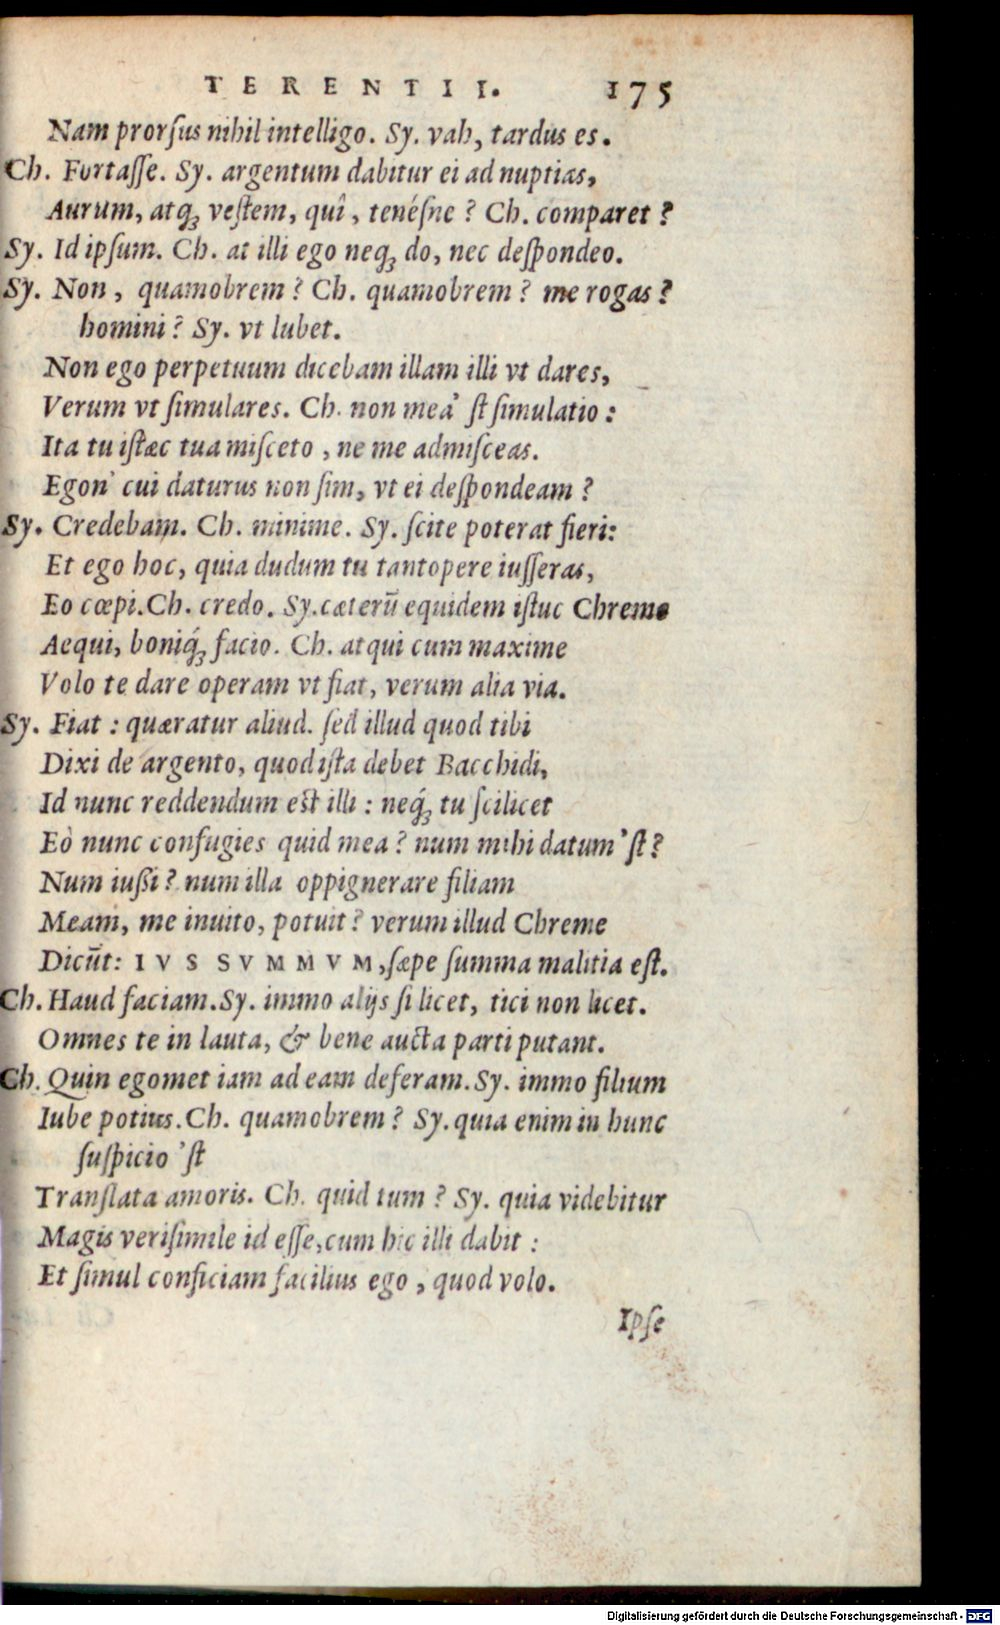 TERENTII. 175
Nam prorſus nihil intelligo. Sy. vah, tardus es.
Ch. Fortaſſe. Sy. argentum dabitur ei ad nuptias,
Aurum, atq́; veſtem, quî, tenéſne? Ch. comparet?
Sy. Id ipſum. Ch. at illi ego neq; do, nec deſpondeo.
Sy. Non, quamobrem? Ch. quamobrem? me rogas?
homini? Sy. vt lubet.
Non ego perpetuum dicebam illam illi vt dares,
Verum vt ſimulares. Ch. non mea' ſt ſimulatio:
Ita tu iſtæc tua miſceto, ne me admiſceas.
Egon' cui daturus non ſim, vt ei deſpondeam?
Sy. Credebam. Ch. minime. Sy. ſcite poterat fieri:
Et ego hoc, quia dudum tu tantopere iuſſeras,
Eo cœpi. Ch. credo. Sy. cæterũ equidem iſtuc Chreme
Aequi, boniq́; facio. Ch. atqui cum maxime
Volo te dare operam vt fiat, verum alia via.
Sy. Fiat: quæratur aliud. ſed illud quod tibi
Dixi de argento, quod iſta debet Bacchidi,
Id nunc reddendum eſt illi: neq́; tu ſcilicet
Eò nunc confugies quid mea? num mihi datum'ſt?
Num iußi? num illa oppignerare filiam
Meam, me inuito, potuit? verum illud Chreme
Dicũt: IVS SVMMVM, ſæpe ſumma malitia eſt.
Ch. Haud faciam. Sy. immo alijs ſi licet, tici non licet.
Omnes te in lauta, & bene aucta parti putant.
Ch. Quin egomet iam ad eam deferam. Sy. immo filium
Iube potius. Ch. quamobrem? Sy. quia enim in hunc
ſuſpicio 'ſt
Tranſlata amoris. Ch. quid tum? Sy. quia videbitur
Magis veriſimile id eſſe, cum hic illi dabit:
Et ſimul conficiam facilius ego, quod volo.
Ipſe
Digitalisierung gefördert durch die Deutsche Forschungsgemeinschaft - DFG